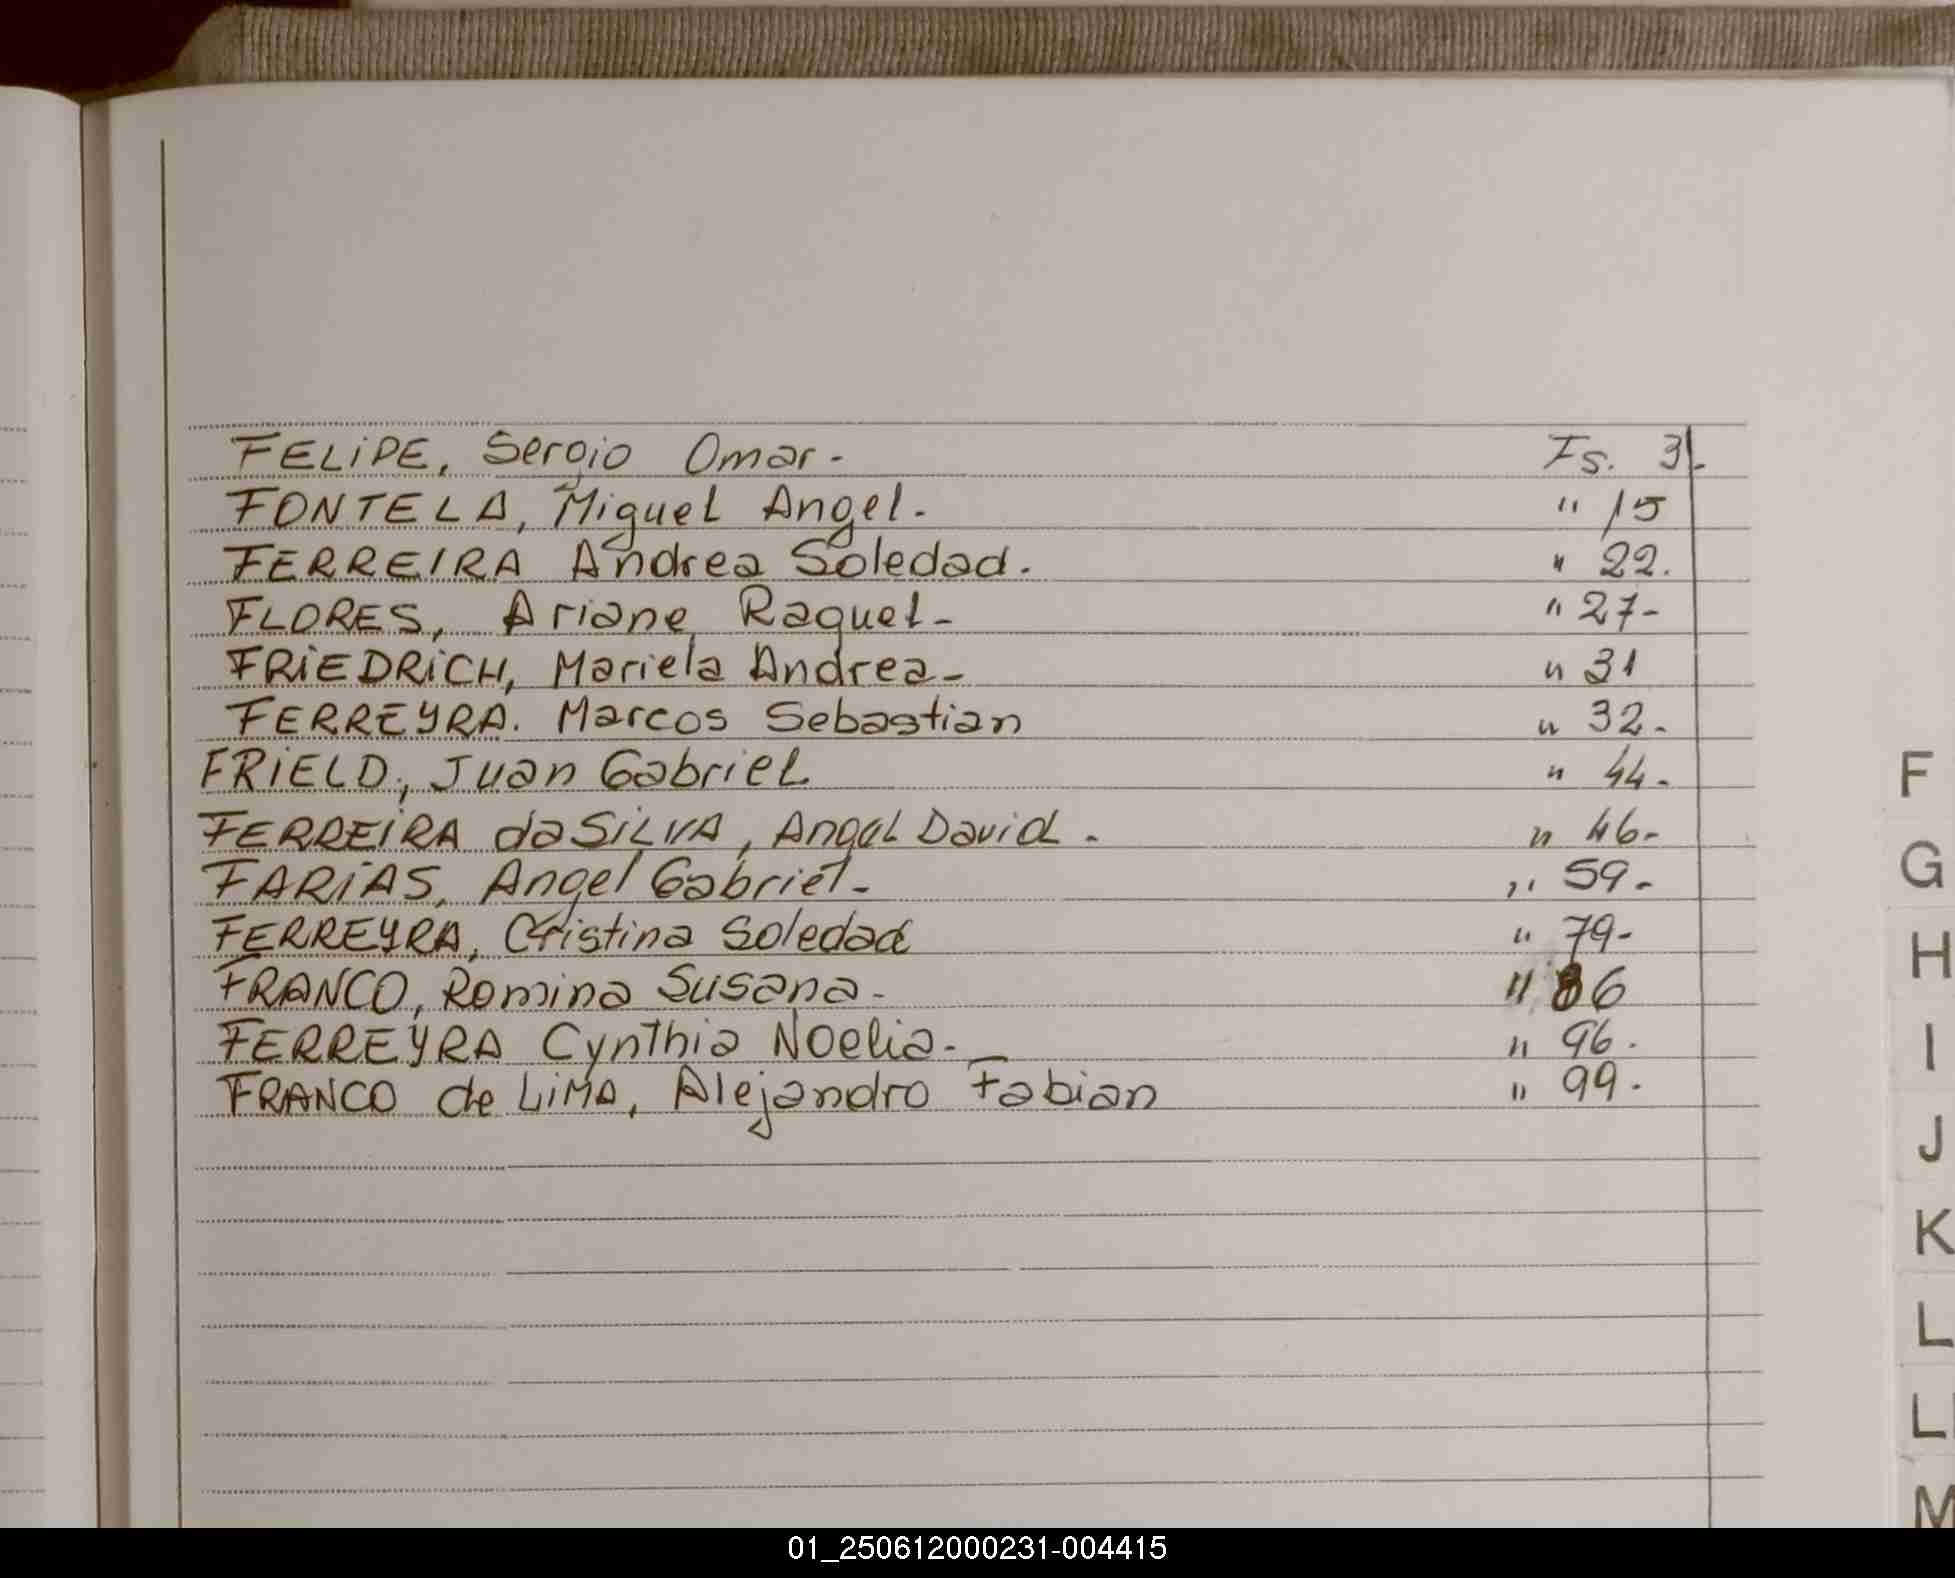 FELIPE, Sergio Omar. Fs. 3.
FONTELA, Miguel Angel. " 15
FERREIRA Andrea Soledad. " 22.
FLORES, Ariane Raquel- " 27-
FRIEDRICH, Mariela Andrea- " 31
FERREYRA. Marcos Sebastian " 32-
FRIELD, Juan Gabriel " 44-
FERREIRA da SILVA, Angel David. " 46-
FARIAS, Angel Gabriel- " 59-
FERREYRA, Cristina Soledad " 79-
FRANCO, Romina Susana- " 86
FERREYRA Cynthia Noelia- " 96.
FRANCO de LIMA, Alejandro Fabian " 99.
F
G
H
I
J
K
L
LL
M
01_250612000231-004415